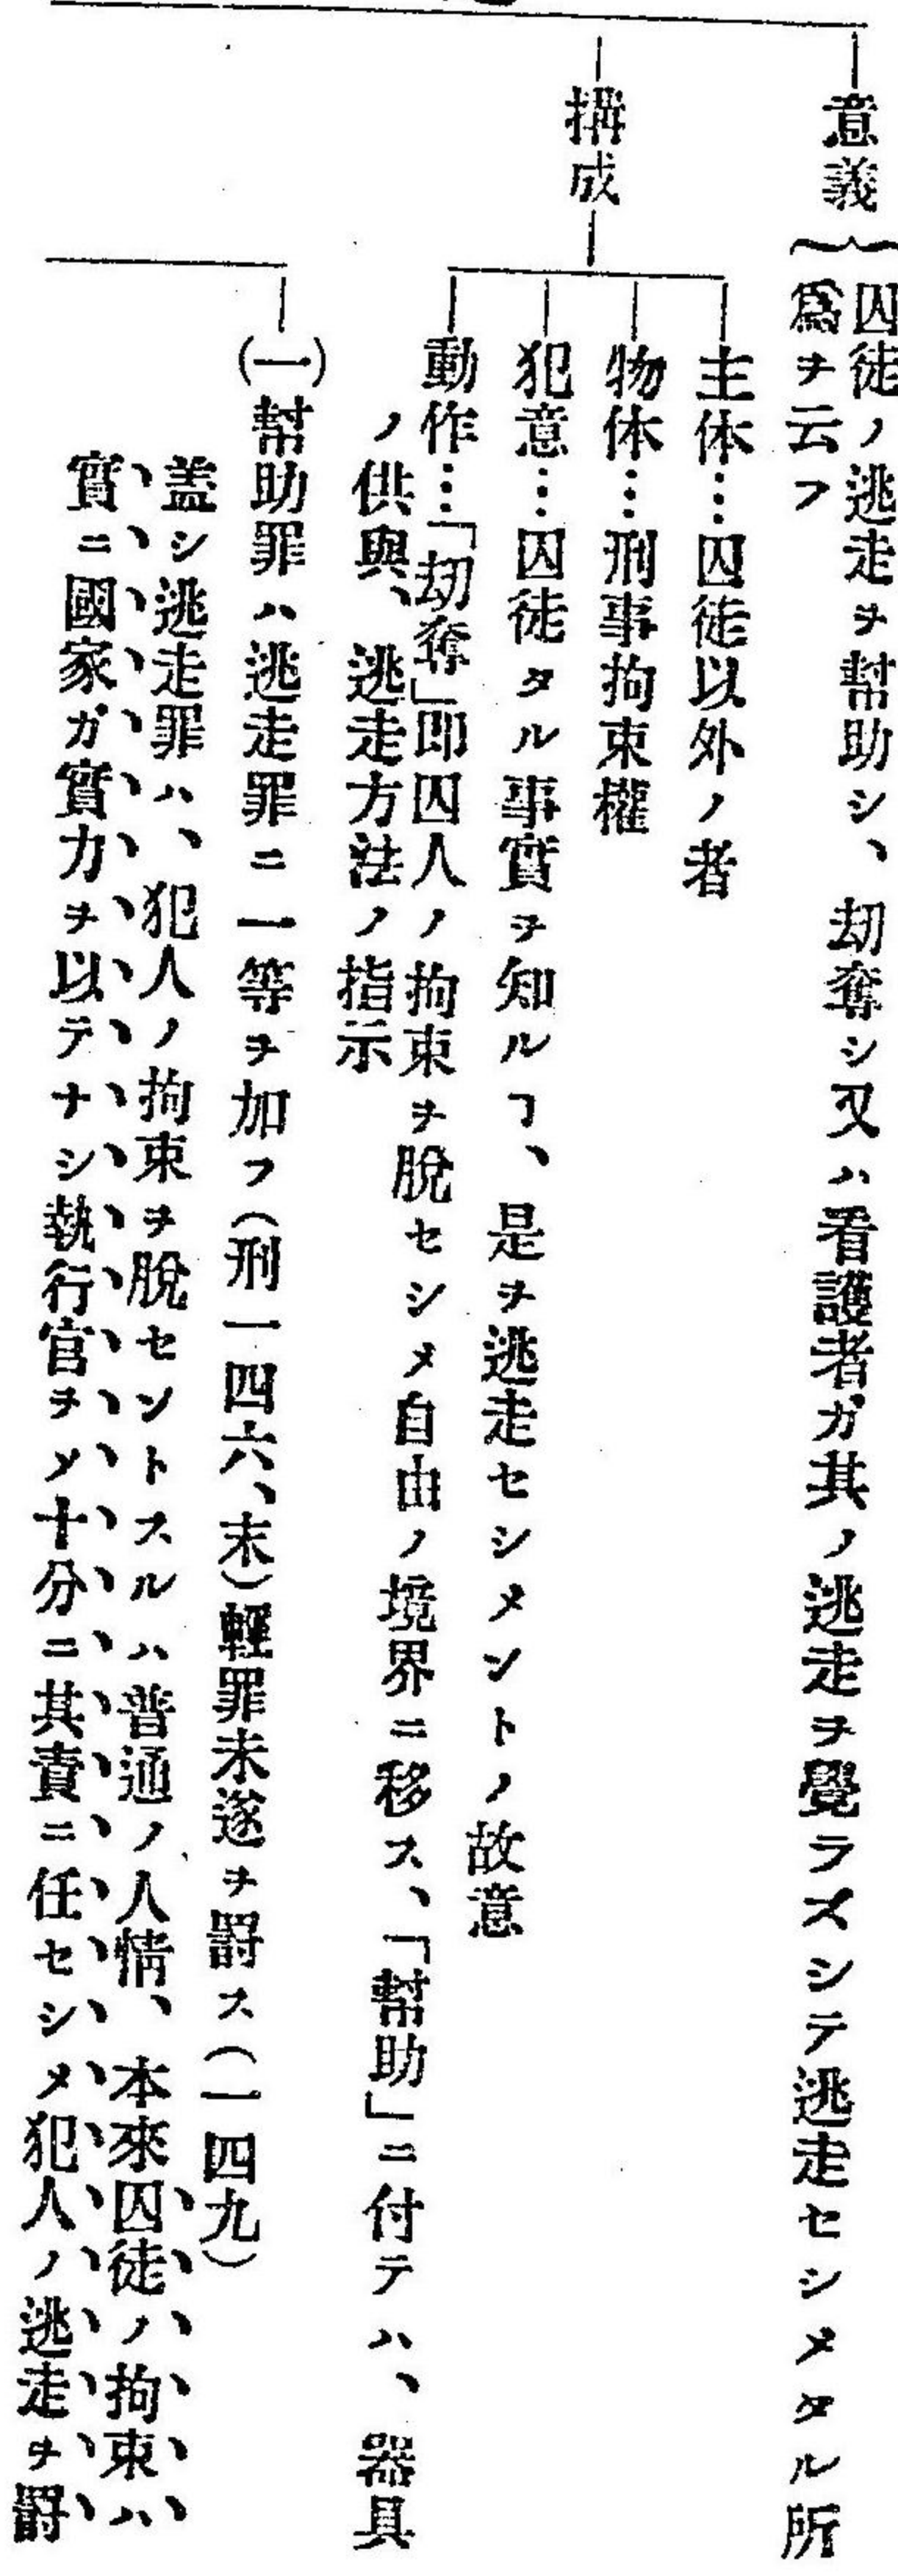 意義
囚徒ノ逃走ヲ幇助シ、劫奪シ又ハ看護者ガ其ノ逃走ヲ覺ラズシテ逃走セシメタル所
爲ヲ云フ
構成
主体…囚徒以外ノ者
物体…刑事拘束權
犯意…囚徒タル事實ヲ知ルヿ、是ヲ逃走セシメントノ故意
動作…「劫奪」即囚人ノ拘束ヲ脫セシメ自由ノ境界ニ移ス、「幇助」ニ付テハ、器具
ノ供與、逃走方法ノ指示
(一)幇助罪ハ逃走罪ニ一等ヲ加フ(刑一四六、末)輕罪未遂ヲ罸ス(一四九)
盖シ逃走罪ハ、犯人ノ拘束ヲ脫セントスルハ普通ノ人情、本來囚徒ノ拘束ハ
實ニ國家ガ實力ヲ以テナシ執行官ヲメ十分ニ其責ニ任セシメ犯人ノ逃走ヲ罸